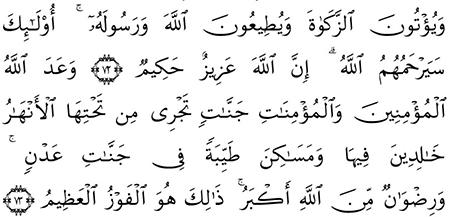 وَيُؤْتُونَ الزَّكَوٰةَ وَيُطِيعُونَ اللَّهَ وَرَسُولَهُۥٓ ۚ أُوْلَـٰٓئِكَ
سَيَرْحَمُهُمُ اللَّهُ ۗ إِنَّ اللَّهَ عَزِيزٌ حَكِيمٌ ﴿٧٢﴾ وَعَدَ اللَّهُ
الْمُؤْمِنِينَ وَالْمُؤْمِنَـٰتِ جَنَّـٰتٍ تَجْرِى مِن تَحْتِهَا الْأَنْهَـٰرُ
خَـٰلِدِينَ فِيهَا وَمَسَـٰكِنَ طَيِّبَةً فِى جَنَّـٰتِ عَدْنٍ ۚ
وَرِضْوَٰنٌ مِّنَ اللَّهِ أَكْبَرُ ۚ ذَٰلِكَ هُوَ الْفَوْزُ الْعَظِيمُ ﴿٧٣﴾